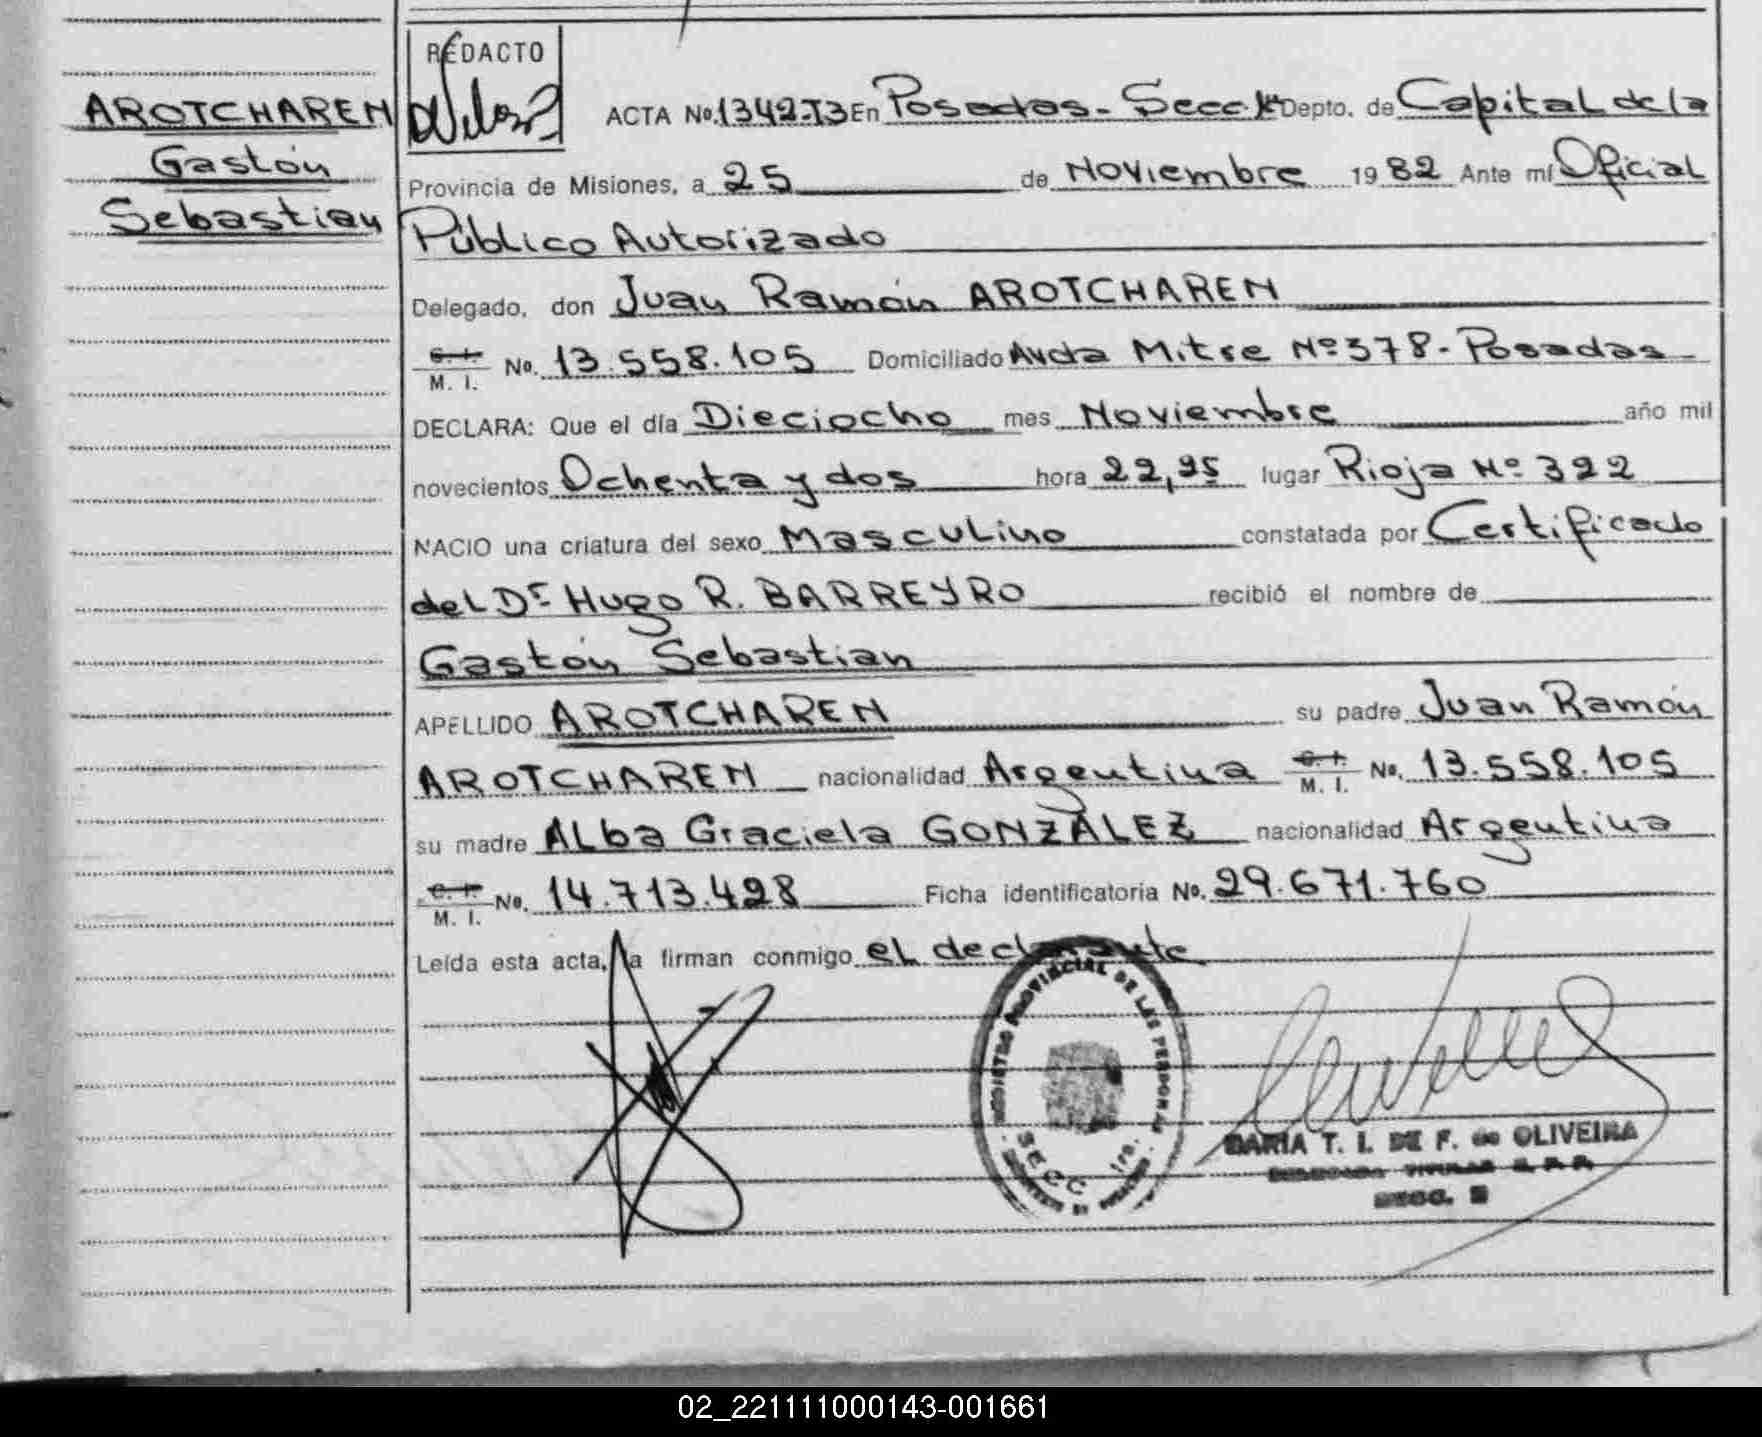 REDACTO
AROTCHAREN
Gastón
Sebastian
ACTA No. 1342-T3 En Posadas - Secc 1ª Depto. de Capital de la
Provincia de Misiones, a 25 de Noviembre 1982 Ante mí Oficial
Público Autorizado
Delegado, don Juan Ramón AROTCHAREN
C. I. M. I. No. 13.558.105 Domiciliado Avda Mitre Nº 378 - Posadas -
DECLARA: Que el día Dieciocho mes Noviembre año mil
novecientos Ochenta y dos hora 22, lugar Rioja Nº 322
NACIO una criatura del sexo Masculino constatada por Certificado
del Dr Hugo R. BARREYRO recibió el nombre de
Gastón Sebastian
APELLIDO AROTCHAREN su padre Juan Ramón
AROTCHAREN nacionalidad Argentina C. I. M. I. No. 13.558.105
su madre ALba Graciela GONZÁLEZ nacionalidad Argentina
C. I. M. I. No. 14.713.428 Ficha identificatoria No. 29.671.760
Leída esta acta, la firman conmigo el declarante
REGISTRO PROVINCIAL DE LAS PERSONAS
SECC 1ra.
MARIA T. I. DE F. de OLIVEIRA
02_221111000143-001661